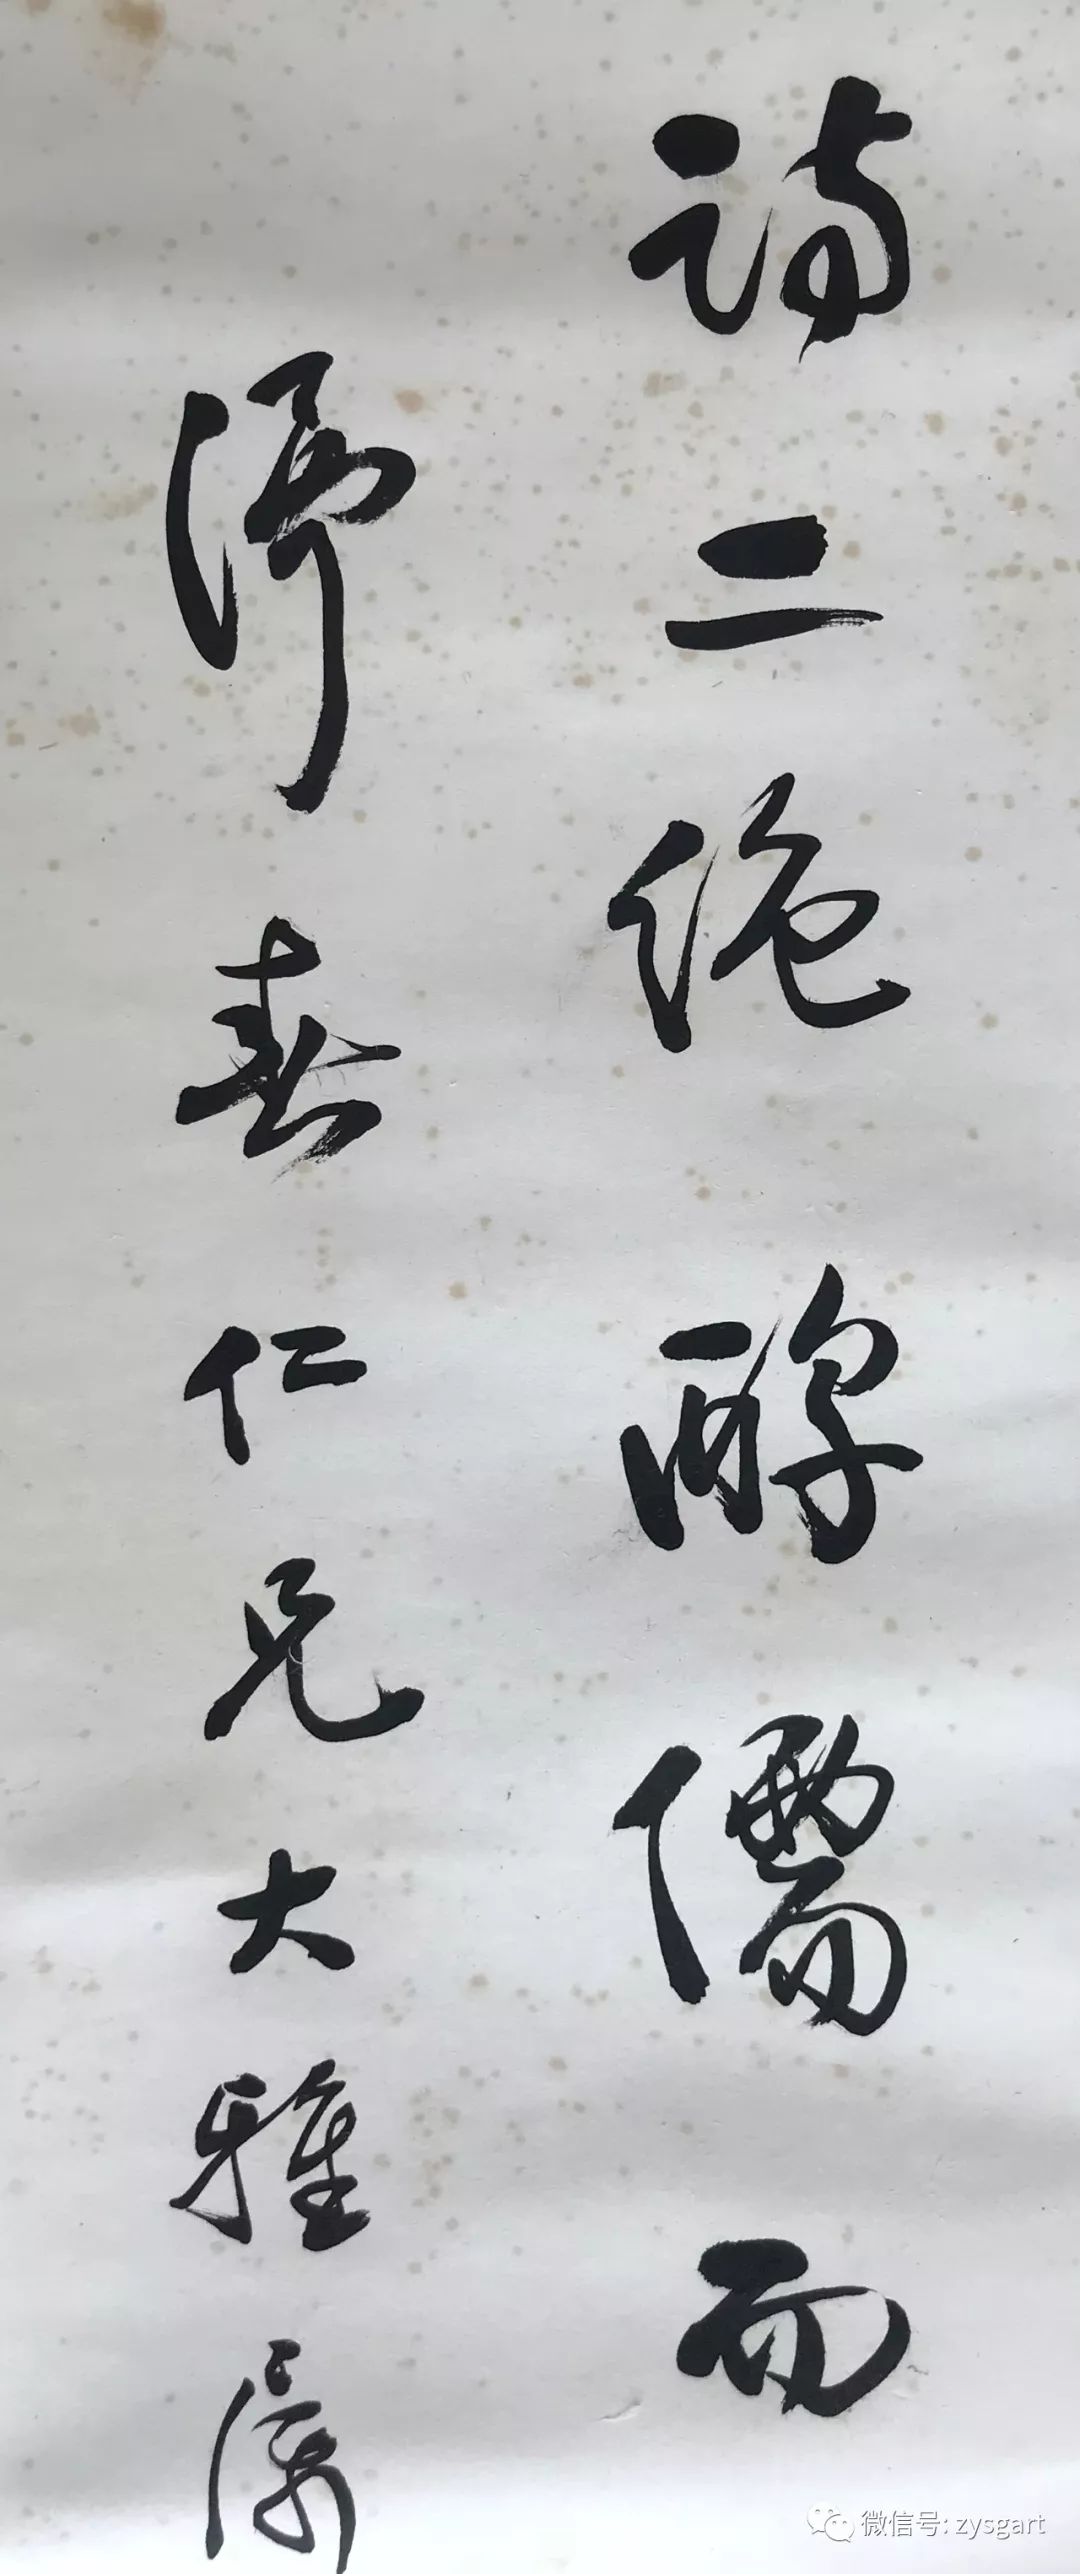 詩二绝醇儒而
春仁兄大雅
微信号: zysgart